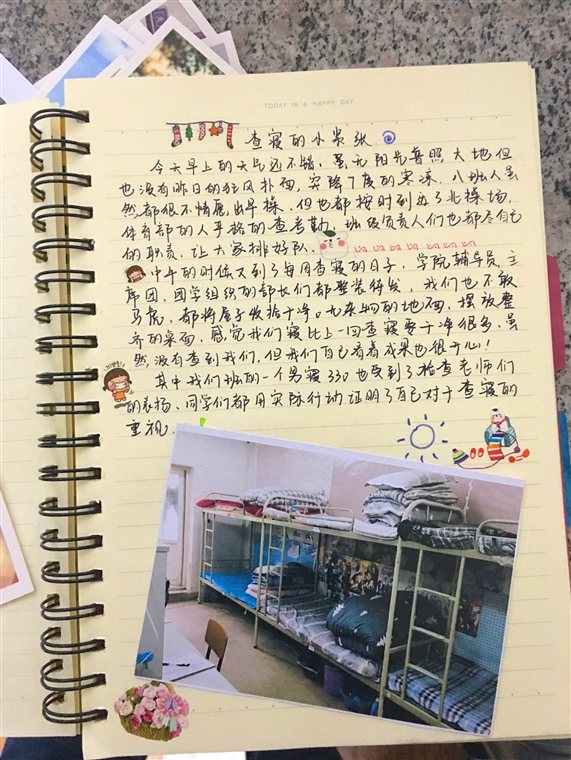 TODAY IS A HAPPY DAY
查寝的小紧张
今天早上的天气还不错，虽无阳光普照大地但
也没有昨日的狂风扑面，突降7度的寒凉。八班人虽
然都很不情愿出早操，但也都按时到达了北操场，
体育部的人严格的查考勤，班级负责人们也都尽自己
的职责，让大家排好队。
中午的时候又到了每周查寝的日子，学院辅导员，主
席团，团学组织的部长们都整装待发，我们也不敢
马虎，都将屋子收拾干净。无杂物的地面，摆放整
齐的桌面，感觉我们寝比上一回查寝要干净很多，虽
然没有查到我们，但我们自己看着成果也很开心！
其中我们班的一个男寝330也受到了检查老师们
的表扬，同学们都用实际行动证明了自己对于查寝的
重视。